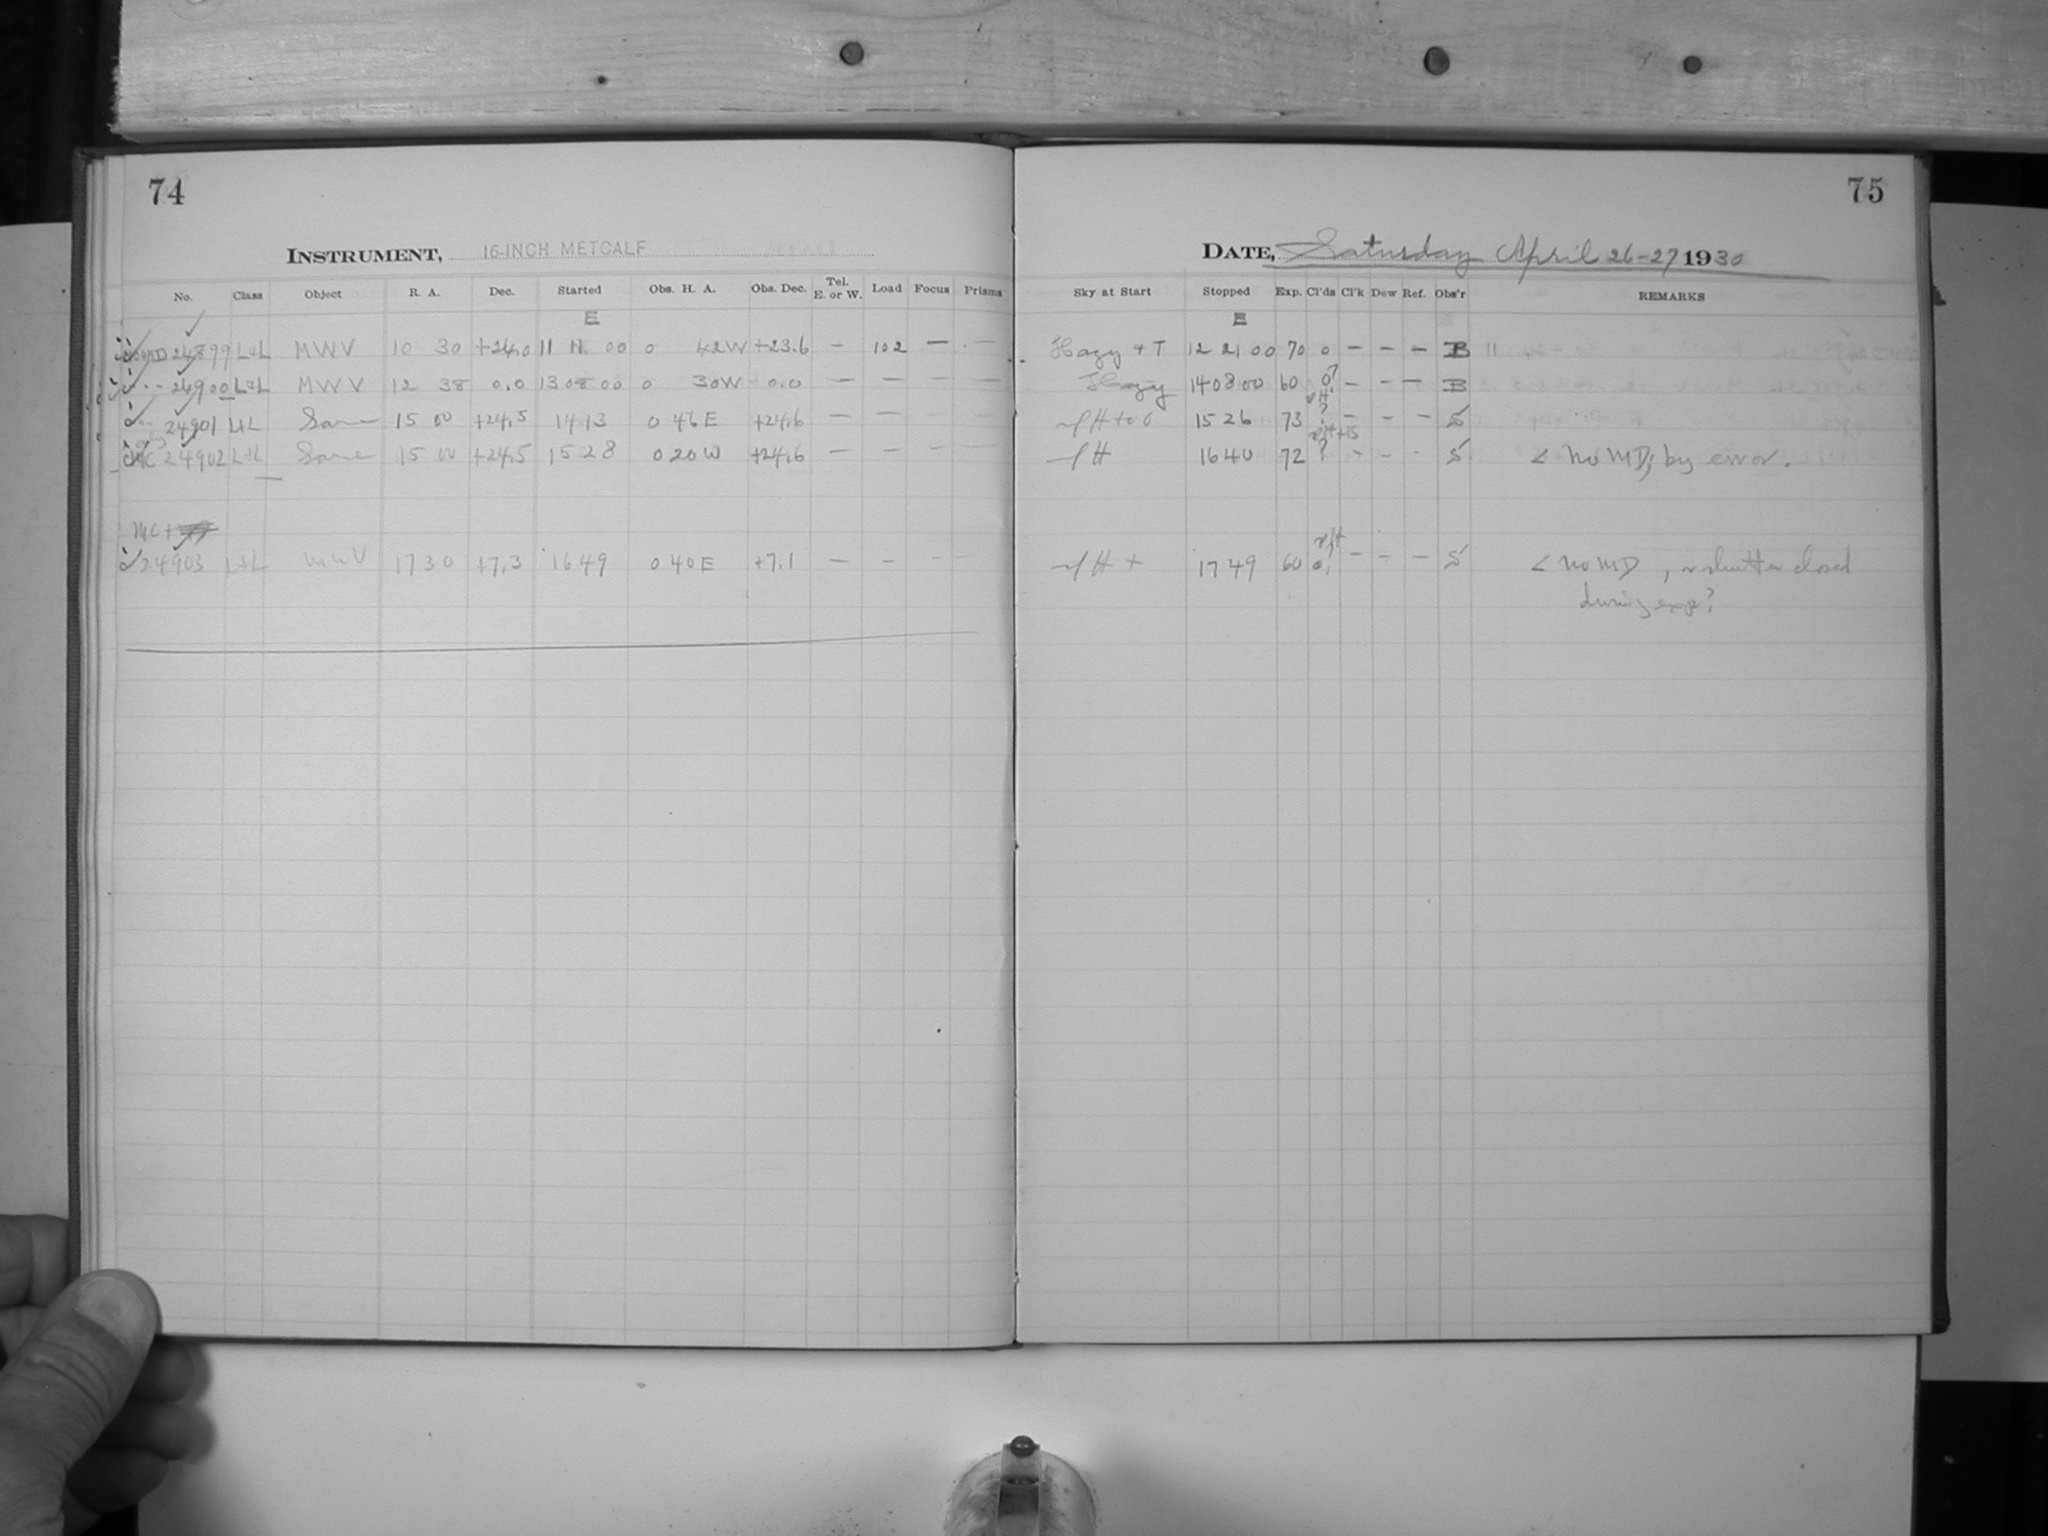 74
75
INSTRUMENT, 16-INCH METCALF
DATE, Saturday April 26-27 1930
No. Class Object R. A. Dec. Started Obs. H. A. Obs. Dec. Tel. E. or W. Load Focus Prisms Sky at Start Stopped Exp. Cl'ds Cl'k Dew Ref. Obs'r REMARKS
E E
24899 L+L MWV 10 30 +24.0 11 11 00 0 42W +23.6 — 102 — — Hazy + T 12 21 00 70 0 — — — B
24900 L+L MWV 12 38 0.0 13 08 00 0 30W 0.0 — — — — Hazy 14 08 00 60 0? — — — B
24901 L+L Same 15 00 +24.5 14 13 0 46 E +24.6 — — — — 15 26 73 ? — — — S
MC 24902 L+L Same 15 00 +24.5 15 28 0 20 W +24.6 — — — — H 16 40 72 ? — — - S < no MD, by error.
MC +
24903 L+L MWV 17 30 +7.3 16 49 0 40 E +7.1 — — — — H + 17 49 60 — — — S < no MD, shutter closed
during exp?